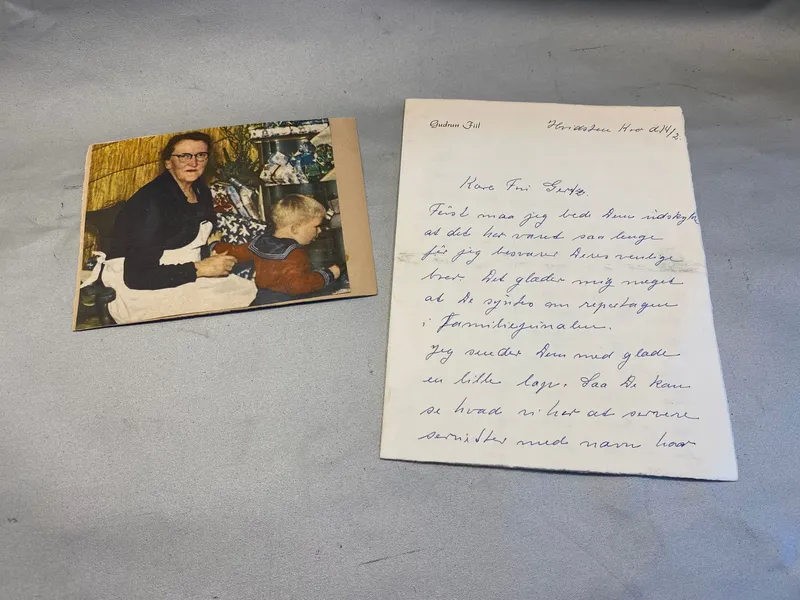 Gudrun Fiil
Hvidsten Kro d 14/2.
Kære Fru Gertz.
Først maa jeg bede Dem undskylde
at det har varet saa længe
før jeg besvarer Deres venlige
brev. Det glæder mig meget
at De synes om reportagen
i Familiejournalen.
Jeg sender Dem med glæde
en lille lap. Saa De kan
se hvad vi har at servere
servietter med navn har